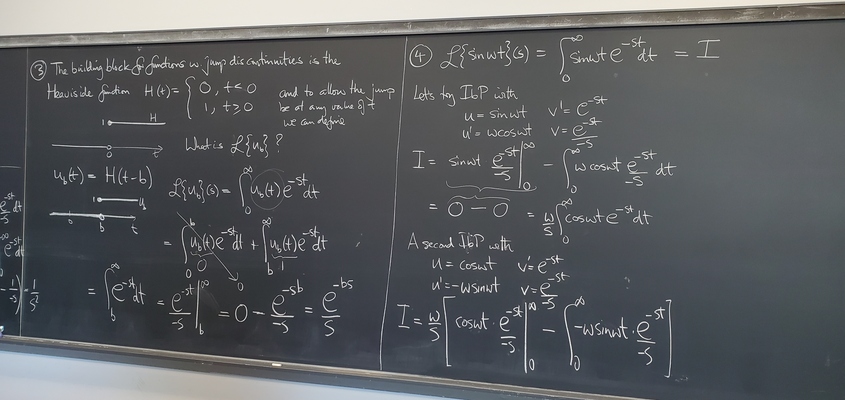 ③ The building block of functions w jump discontinuities is the
Heaviside function H(t) = { 0, t<0
1, t≥0
and to allow the jump
be at any value of t
we can define
1 H
0 t
What is ℒ{u_b}?
u_b(t) = H(t-b)
1 u_b
0 b t
ℒ{u_b}(s) = ∫_0^∞ u_b(t) e^{-st} dt
= ∫_0^b u_b(t) e^{-st} dt + ∫_b^∞ u_b(t) e^{-st} dt
0 1
0
= ∫_b^∞ e^{-st} dt = e^{-st}/-s |_b^∞ = 0 - e^{-sb}/-s = e^{-bs}/s
e^{-st}/-s
e^{-st}
-1/s) = 1/s²
④ ℒ{sin ωt}(s) = ∫_0^∞ sin ωt e^{-st} dt = I
Let's try IbP with
u = sin ωt v' = e^{-st}
u' = ω cos ωt v = e^{-st}/-s
I = sin ωt e^{-st}/-s |_0^∞ - ∫_0^∞ ω cos ωt e^{-st}/-s dt
= 0 - 0 = ω/s ∫_0^∞ cos ωt e^{-st} dt
A second IbP with
u = cos ωt v' = e^{-st}
u' = -ω sin ωt v = e^{-st}/-s
I = ω/s [ cos ωt · e^{-st}/-s |_0^∞ - ∫_0^∞ -ω sin ωt · e^{-st}/-s ]